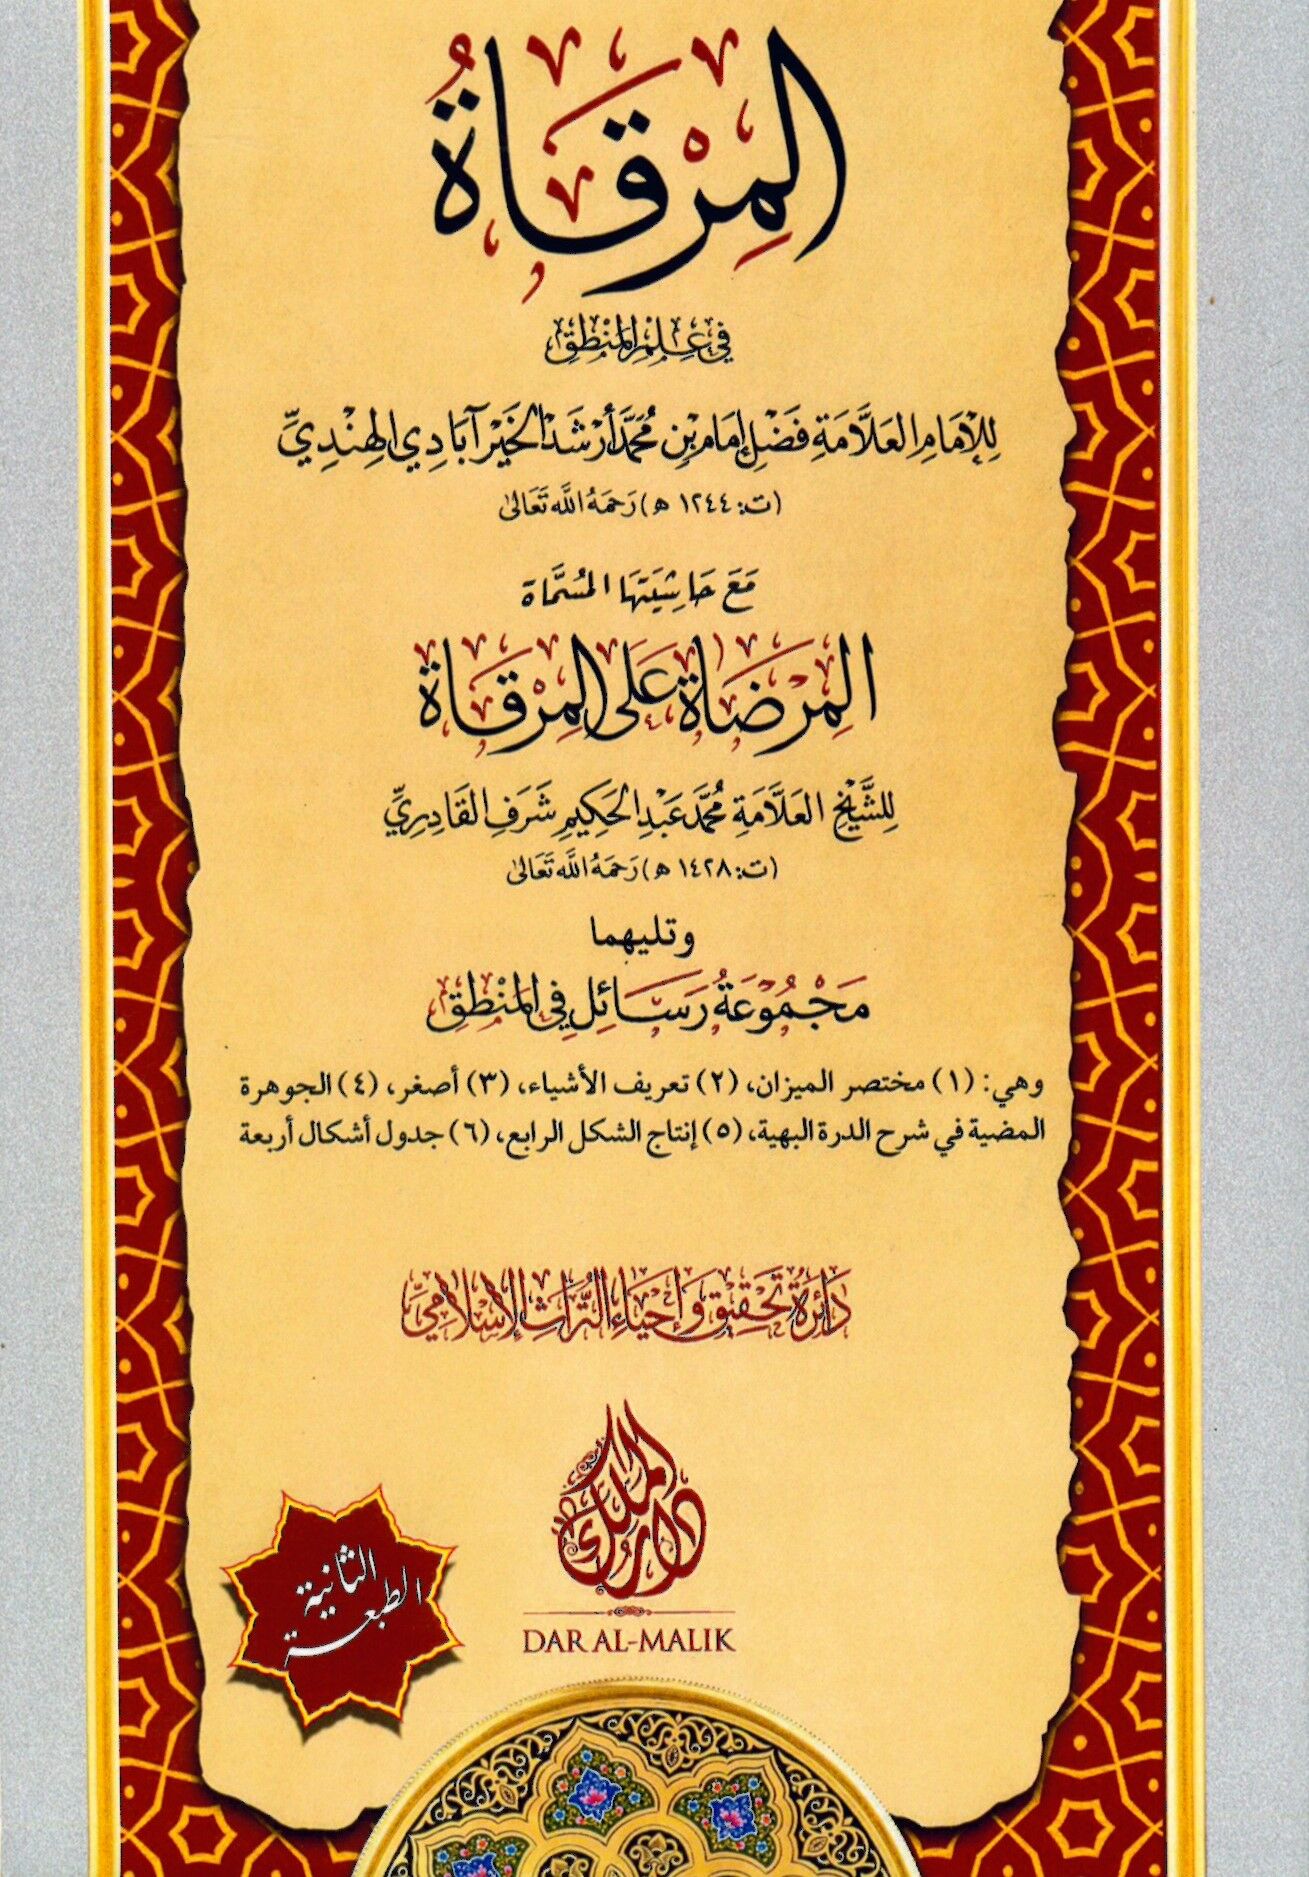 المِرْقَاةُ
فِي عِلْمِ المَنْطِقِ
لِلْإِمَامِ العَلَّامَةِ فَضْلِ إِمَام بْنِ مُحَمَّد أَرْشَد الخَيْر آبَادِي الهِنْدِيِّ
(ت: ١٢٤٤ ه) رَحِمَهُ اللَّه تَعَالَىٰ
مَعَ حَاشِيَتِهَا المُسَمَّاة
المِرْضَاةُ عَلَى المِرْقَاةِ
لِلشَّيْخِ العَلَّامَةِ مُحَمَّد عَبْدِ الحَكِيمِ شَرَفِ القَادِرِيِّ
(ت: ١٤٢٨ ه) رَحِمَهُ اللَّه تَعَالَىٰ
وتليهما
مَجْمُوْعَةُ رَسَائِل فِي المَنْطِقِ
وهي: (١) مختصر الميزان، (٢) تعريف الأشياء، (٣) أصغر، (٤) الجوهرة
المضية في شرح الدرة البهية، (٥) إنتاج الشكل الرابع، (٦) جدول أشكال أربعة
دَائِرَةُ تَحْقِيْقِ وَإِحْيَاءِ التُّرَاثِ الإِسْلَامِيِّ
دار الملك
DAR AL-MALIK
الطبعة
الثانية